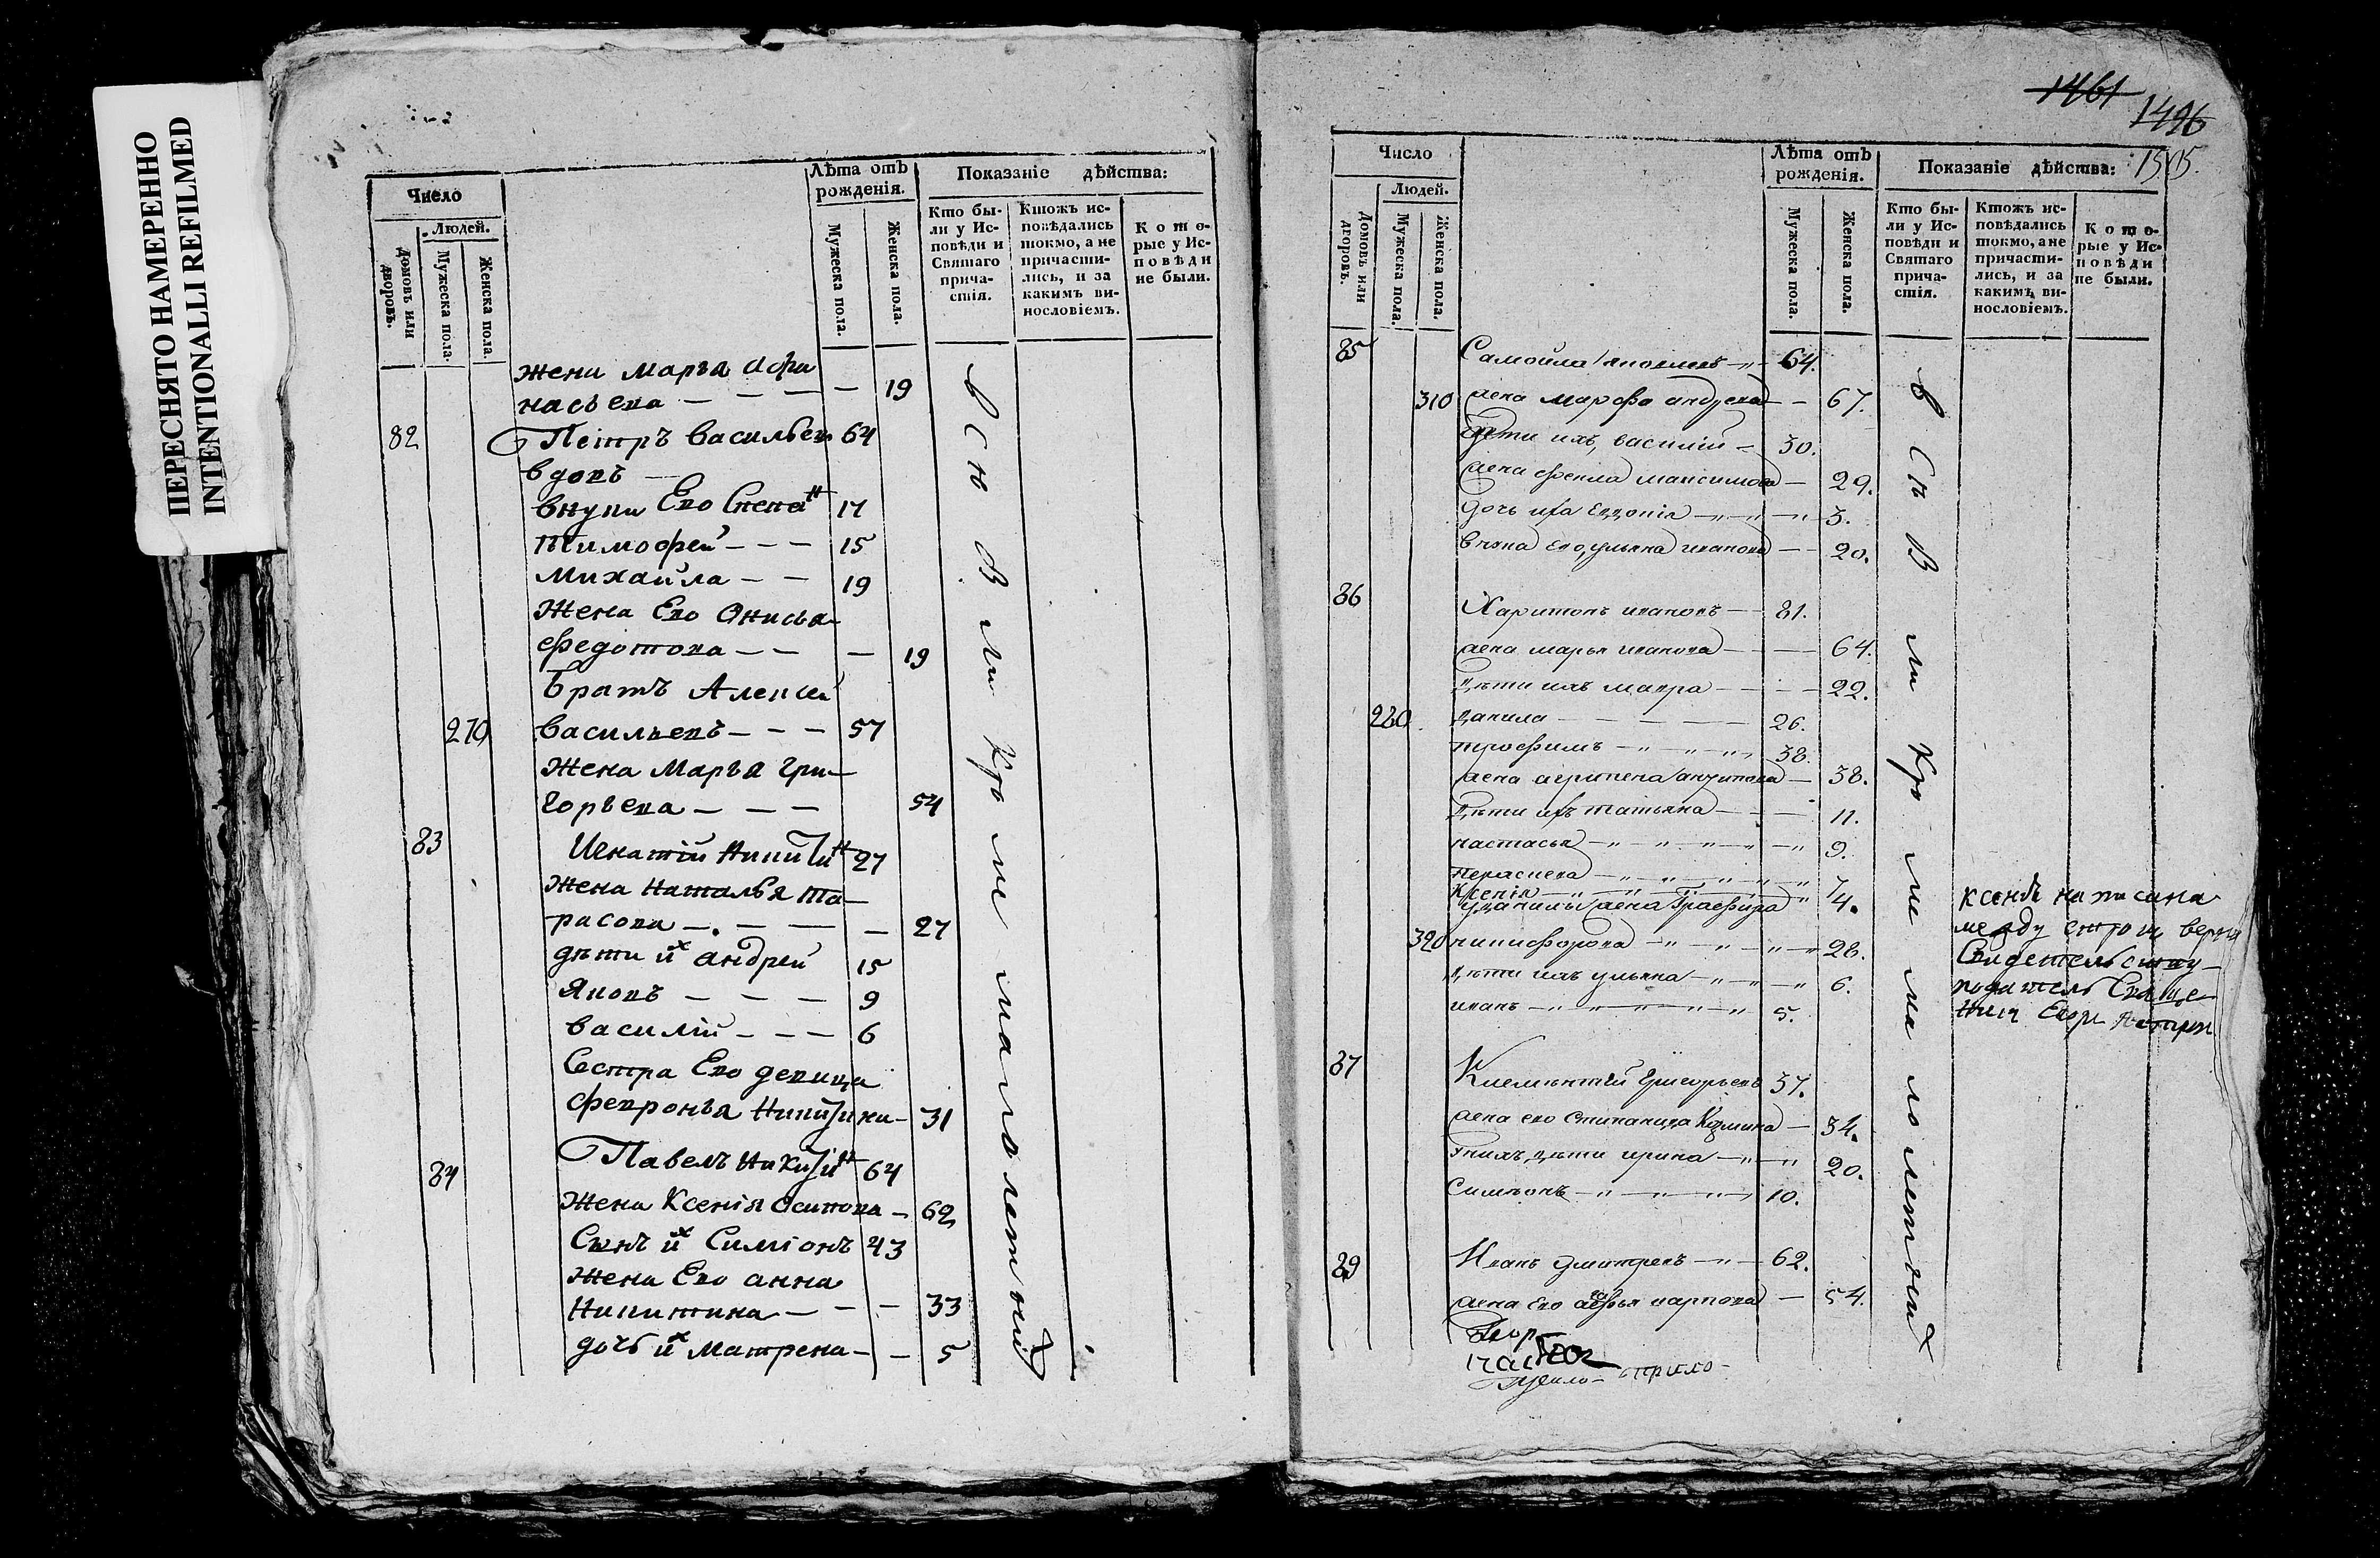 ПЕРЕСНЯТО НАМЕРЕННО
INTENTIONALLI REFILMED
Число
Людей.
Домовъ или дворовъ.
Мужеска пола.
Женска пола.
Лѣта отъ рожденія.
Мужеска пола.
Женска пола.
Показаніе дѣйства:
Кто бы-
ли у Ис-
повѣди и
Святаго
прича-
стія.
Ктожъ ис-
повѣдались
токмо, а не
причасти-
лись, и за
какимъ ви-
нословіемъ.
Кото-
рые у Ис-
повѣди
не были.
жена Марья Афа
насьева — — — — 19
82 Петръ Васильевъ 64
вдовъ —
внуки Ево Степанъ 17
Тимофей — — — 15
Михайла — — 19
Жена Ево Онисья
Федотова — — — 19
Братъ Алексей
270 Васильевъ — — — 57
Жена Марья Гри—
горьева — — — 54
83 Игнатій Никитинъ 27
Жена Наталья Та—
расова — — — — 27
дѣти их Андрей 15
Яковъ — — — 9
Василій — — — 6
Сестра Ево девица
Февронья Никитина — 31
84 Павелъ Никитинъ 64
Жена Ксенія Осипова — 62
Сынъ их Симіонъ 43
Жена Ево Анна
Никитина — — — 33
дочь их Матрена — — 5
Всѣ
Кроме малолетних
1461
1496
1505.
Число
Людей.
Домовъ или дворовъ.
Мужеска пола.
Женска пола.
Лѣта отъ рожденія.
Мужеска пола.
Женска пола.
Показаніе дѣйства:
Кто бы-
ли у Ис-
повѣди и
Святаго
прича-
стія.
Ктожъ ис-
повѣдались
токмо, а не
причасти-
лись, и за
какимъ ви-
нословіемъ.
Кото-
рые у Ис-
повѣди
не были.
85 Самойла Яковлевъ — 64.
310 жена Марфа — 67.
Дети ихъ, Василій — 30.
жена Фекла Максимова — 29.
дочь ихъ — 3.
ево, Ульяна Иванова — — 20.
86 Харитонъ Ивановъ — — 81.
жена Марья Иванова — — — 64.
Дѣти ихъ Мавра — — — 22.
280 Данила — — — — 26.
Трофимъ — 38.
жена Агрипена — 38.
Дѣти ихъ Татьяна — — — 11.
Настасья — 9.
— 7
Ксенія — 4.
у Данилы жена Глафира
320 Никифорова — 28.
Дѣти ихъ Ульяна — 6.
Иванъ — 5.
Ксенія написана
между строк верно
Свидетельству—
87 Климентей Григорьевъ 37.
жена ево Степанида Козмина — 34.
У нихъ дѣти Ирина — 20.
Симеонъ — 10.
89 Иванъ Дмитревъ — 62.
жена Ево Карпова — 54.
Всѣ
Кроме малолетних